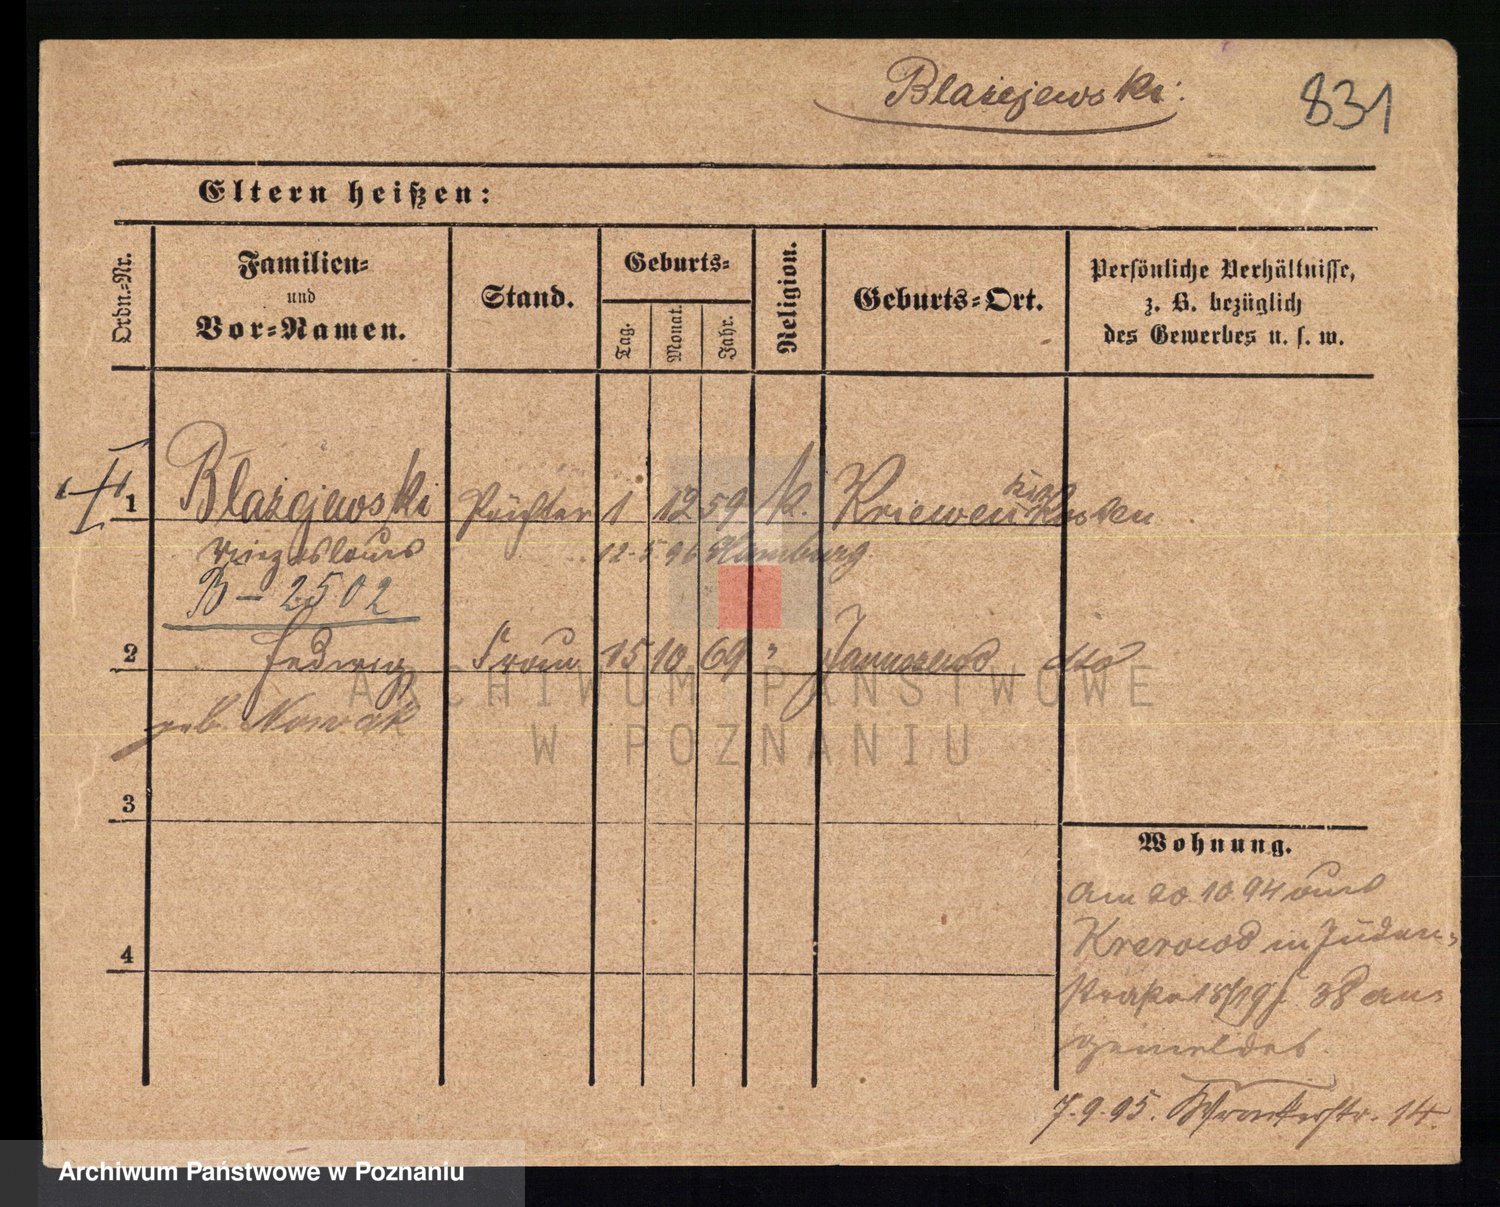 Blażejewski.
831
Eltern heißen:
Ordn.-Nr.
Familien-
und
Vor-Namen.
Stand.
Geburts-
Tag.
Monat.
Jahr.
Religion.
Geburts-Ort.
Persönliche Verhältnisse,
z. B. bezüglich
des Gewerbes u. s. w.
1 Blażejewski Pächter 1 12 59 k. Kriewen Krs. Kosten
12. 5 96 Hamburg.
B - 2502
2 Hedwig Frau 15 10 69 " Januszewo dto
geb. Nowak
3
4
Wohnung.
Am 20.10.94 aus
in Juden-
straße 18/19 an-
gemeldet.
7.9.95. Wronkerstr. 14.
ARCHIWUM PAŃSTWOWE
W POZNANIU
Archiwum Państwowe w Poznaniu